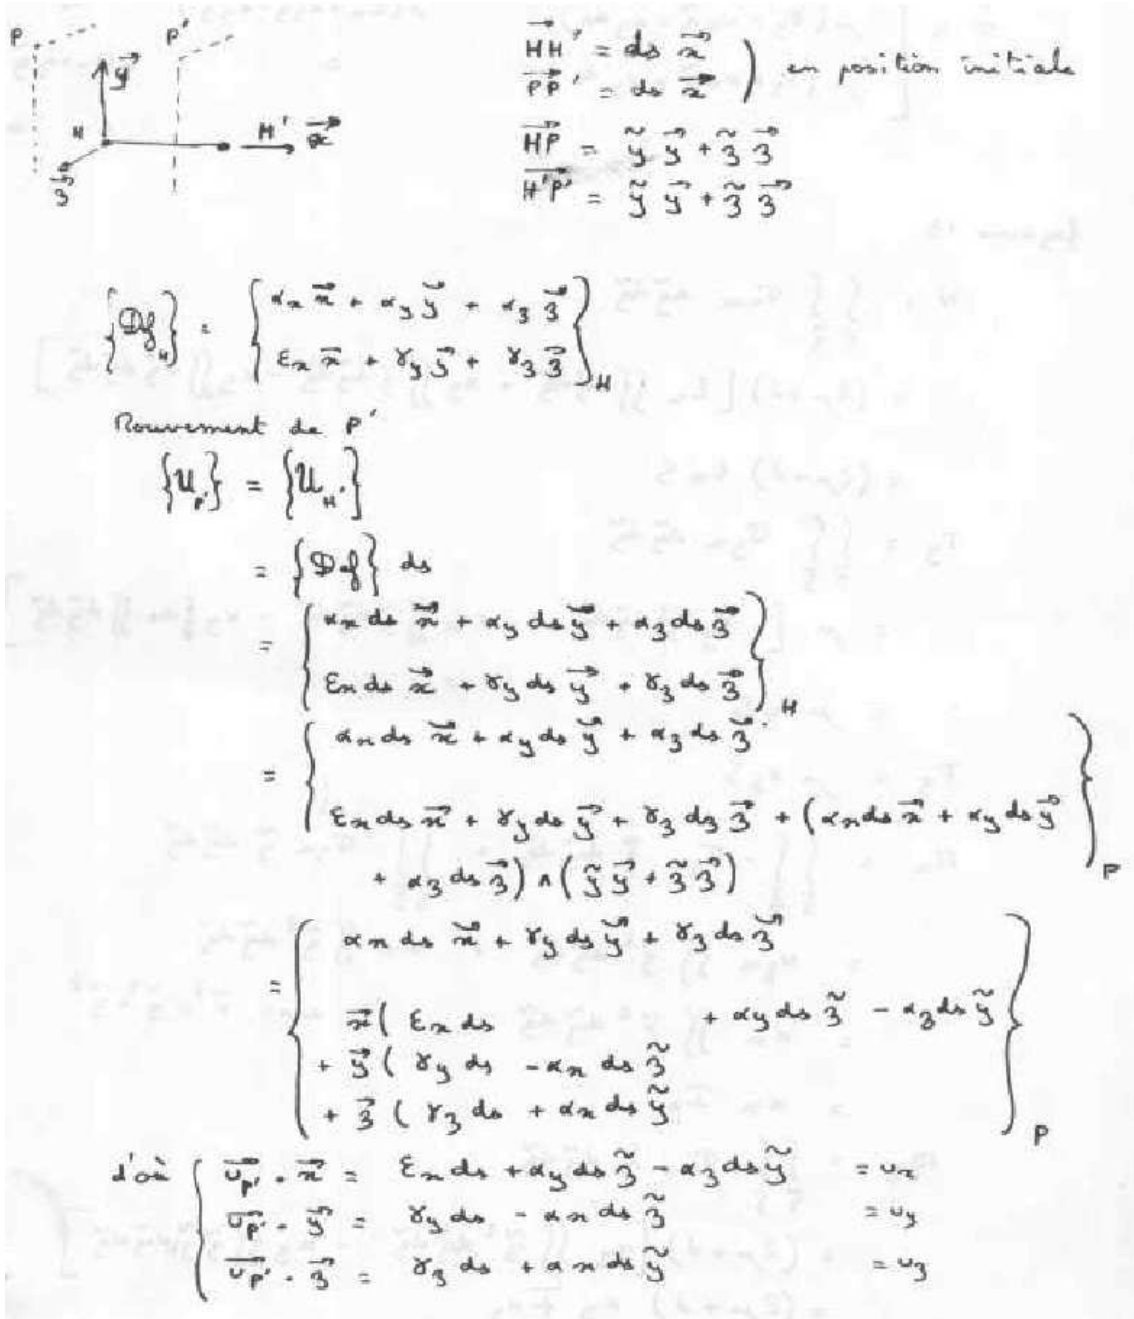 P P' y⃗
H H' x⃗
z⃗
HH'⃗ = ds x⃗
PP'⃗ = ds x⃗ ) en position initiale
HP⃗ = ỹ y⃗ + z̃ z⃗
H'P'⃗ = ỹ y⃗ + z̃ z⃗
{Def_H} = { αx x⃗ + αy y⃗ + αz z⃗
εx x⃗ + γy y⃗ + γz z⃗ }_H
Mouvement de P'
{U_P'} = {U_H'}
= {Def} ds
= { αx ds x⃗ + αy ds y⃗ + αz ds z⃗
εx ds x⃗ + γy ds y⃗ + γz ds z⃗ }_H
= { αx ds x⃗ + αy ds y⃗ + αz ds z⃗
εx ds x⃗ + γy ds y⃗ + γz dz z⃗ + (αx ds x⃗ + αy ds y⃗
+ αz ds z⃗) ∧ (ỹ y⃗ + z̃ z⃗) }_P
= { αx ds x⃗ + γy ds y⃗ + γz ds z⃗
x⃗ ( εx ds + αy ds z̃ - αz ds ỹ
+ y⃗ ( γy ds - αx ds z̃
+ z⃗ ( γz ds + αx ds ỹ }_P
d'où { U_P'⃗ . x⃗ = εx ds + αy ds z̃ - αz ds ỹ = ux
U_P'⃗ . y⃗ = γy ds - αx ds z̃ = uy
U_P'⃗ . z⃗ = γz ds + αx ds ỹ = uz